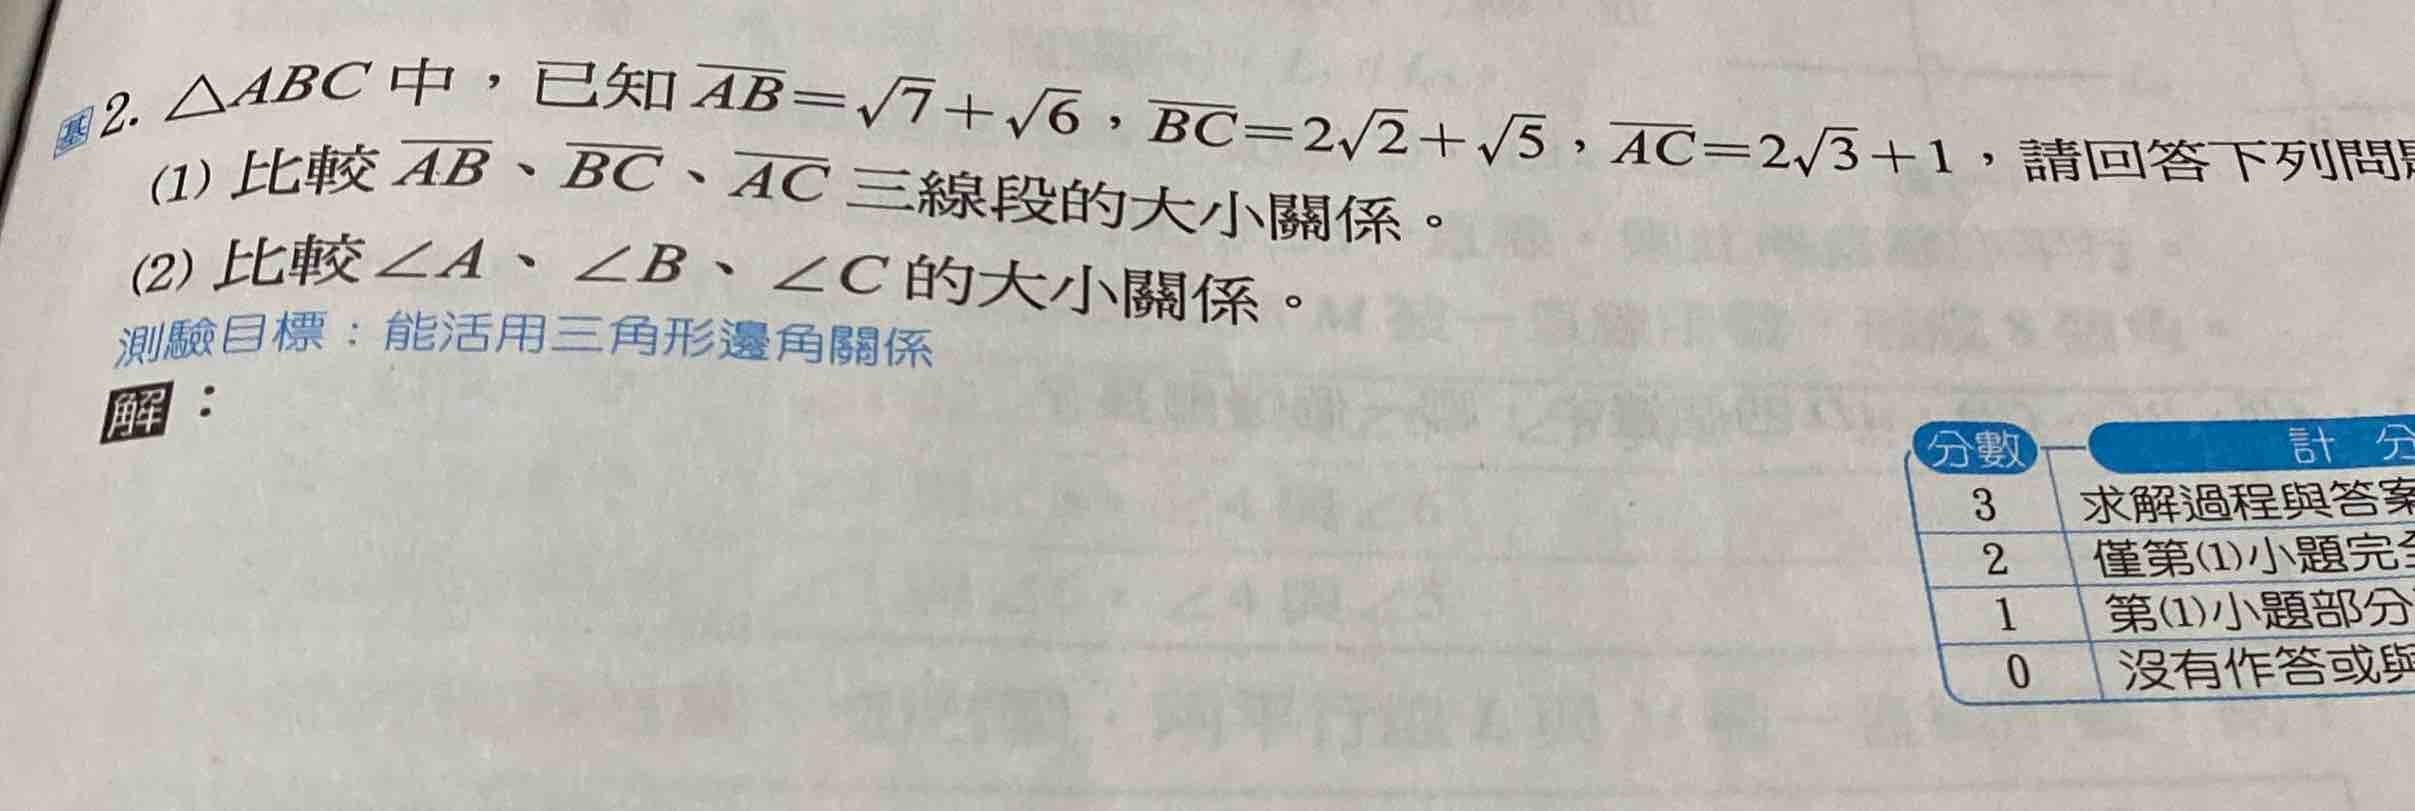 基 2. △ABC 中，已知 AB=√7+√6，BC=2√2+√5，AC=2√3+1，請回答下列問
(1) 比較 AB、BC、AC 三線段的大小關係。
(2) 比較∠A、∠B、∠C 的大小關係。
測驗目標：能活用三角形邊角關係
解：
分數 計 分
3 求解過程與答案
2 僅第(1)小題完全
1 第(1)小題部分
0 沒有作答或與